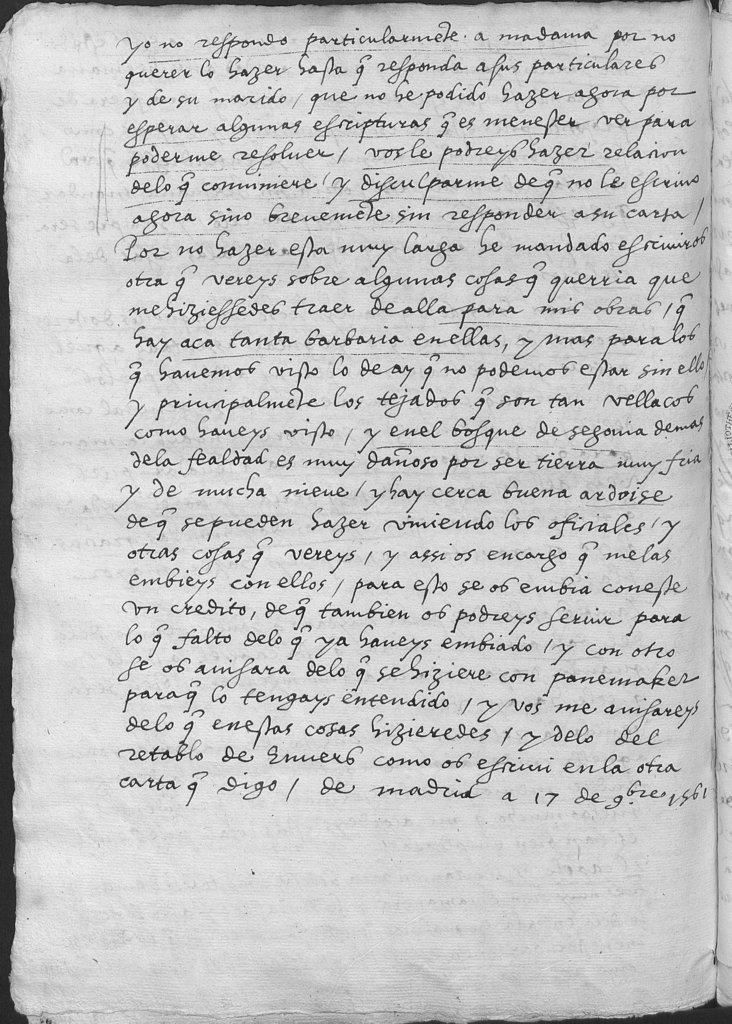 yo no respondo particularmẽte a madama por no
querer lo hazer hasta q̃ responda a sus particulares
y de su marido / que no he podido hazer agora por
esperar algunas escripturas q̃ es menester ver para
poderme resoluer / vos le podreys hazer relacion
delo q̃ conuiniere / y disculparme de q̃ no le escriuo
agora sino breuemẽte sin responder a su carta /
Por no hazer esta muy larga he mandado escriuiros
otra q̃ vereys sobre algunas cosas q̃ querria que
me hiziessedes traer de alla para mis obras / q̃
hay aca tanta barbaria en ellas, y mas para los
q̃ hauemos visto lo de ay q̃ no podemos estar sin ello
y principalmẽte los tejados q̃ son tan vellacos
como haueys visto / y en el bosque de segouia demas
dela fealdad es muy dañoso por ser tierra muy fria
y de mucha nieue / y hay cerca buena ardoise
de q̃ se pueden hazer viniendo los oficiales / y
otras cosas q̃ vereys / y assi os encargo q̃ me las
embieys con ellos / para esto se os embia con este
vn credito, de q̃ tambien os podreys seruir para
lo q̃ falto delo q̃ ya haueys embiado / y con otro
se os auisara delo q̃ se hiziere con panemaker
para q̃ lo tengays entendido / y vos me auisareys
delo q̃ en estas cosas hizieredes / y delo del
retablo de Enuers como os escriui en la otra
carta q̃ digo / de madrid a 17 de 9bre 1561